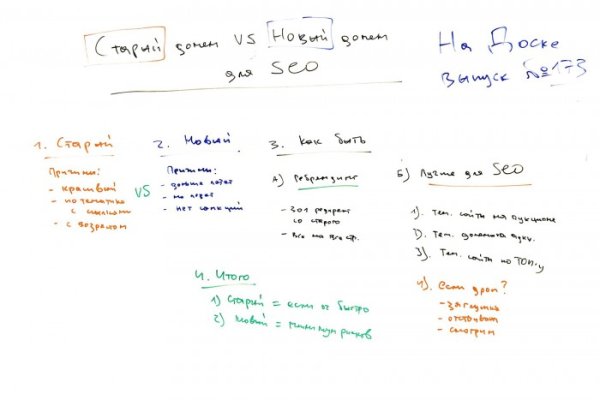 Старый домен VS Новый домен
для SEO
На Доске
выпуск №173
1. Старый
Причины:
- красивый
- по тематике
с ссылками
- с возрастом
VS
2. Новый
Причины:
- дольше
- нет санкций
3. Как быть
А) Ребрендинг
- 301 редирект
со старого
- Все на все стр.
Б) Лучше для SEO
1). Тем. сайты на аукционе
2). Тем. домена аукц.
3). Тем. сайты по ТОПу
4). если дроп?
- заглушка
- отстойник
- смотрим
4. Итого
1) Старый = если оч быстро
2) Новый = минимум рисков